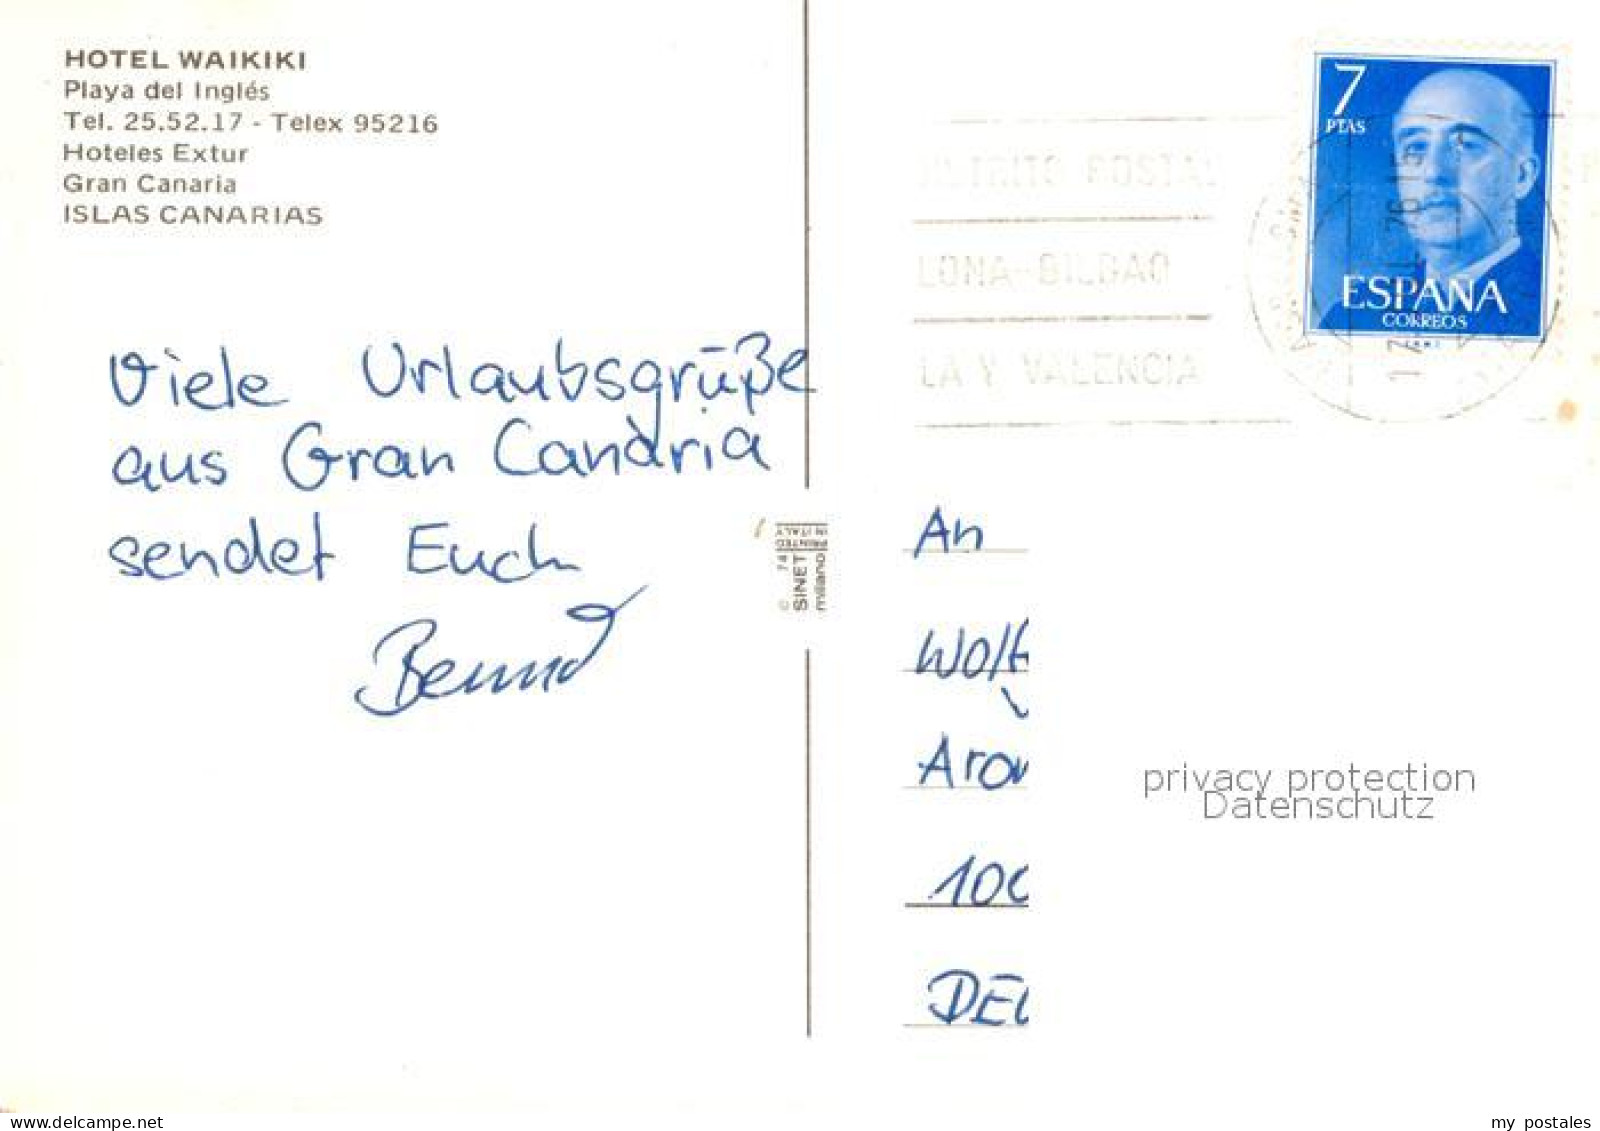 HOTEL WAIKIKI
Playa del Inglés
Tel. 25.52.17 - Telex 95216
Hoteles Extur
Gran Canaria
ISLAS CANARIAS
Viele Urlaubsgrüße
aus Gran Canaria
sendet Euch
Bernd
© 74
SINET
milano
PRINTED
IN ITALY
7
PTAS
ESPAÑA
CORREOS
POSTAL
LONA-BILBAO
LA Y VALENCIA
An
Wolf
Aron
100
DEU
privacy protection
Datenschutz
delcampe.net
my postales